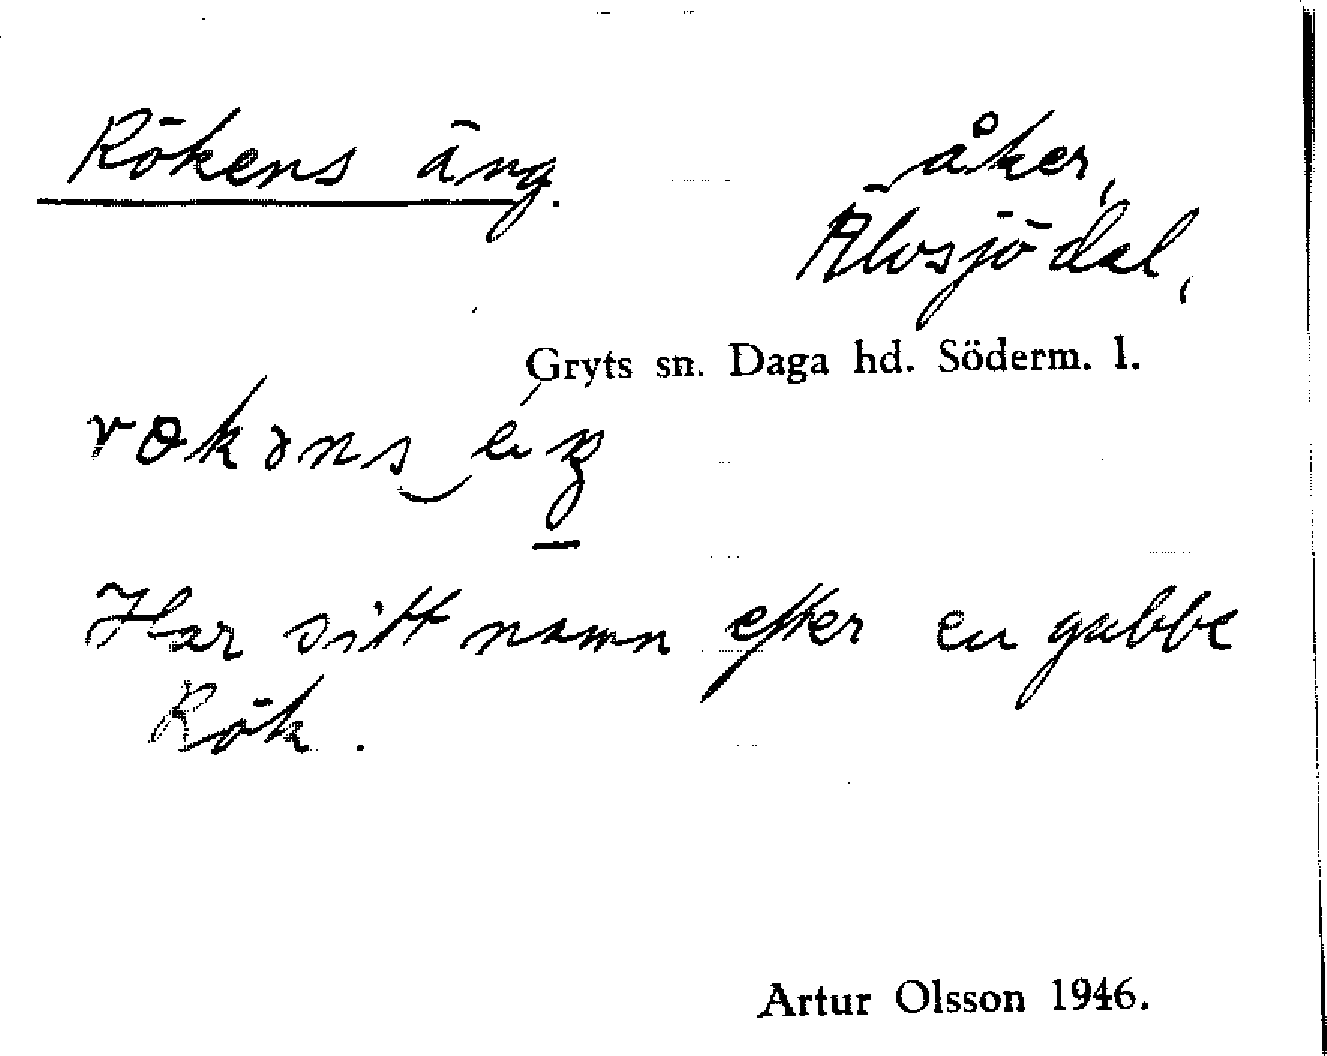 Rökens äng.
åker,
Älvsjödal,
Gryts sn. Daga hd. Söderm. l.
Har sitt namn efter en gubbe
Rök.
Artur Olsson 1946.